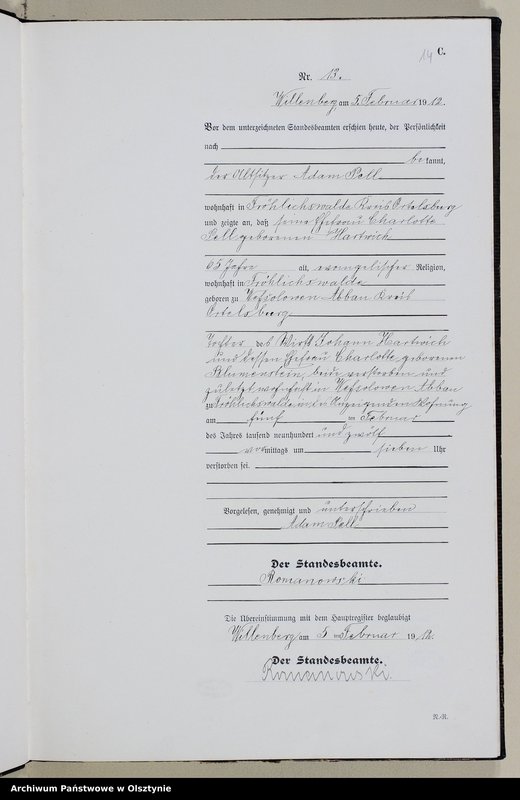 14 C.
Nr. 13.
Willenberg am 5. Februar 1912.
Vor dem unterzeichneten Standesbeamten erschien heute, der Persönlichkeit
nach
bekannt,
der Altsitzer Adam Sall
wohnhaft in Fröhlichswalde Kreis Ortelsburg
und zeigte an, daß seine Ehefrau Charlotte
Sall geborenen Hartwich
65 Jahre alt, evangelischer Religion,
wohnhaft in Fröhlichswalde
geboren zu Wessolowen Abbau Kreis
Ortelsburg
Tochter des Wirts Johann Hartwich
und dessen Ehefrau Charlotte geborenen
Blumenstein, beide verstorben und
zuletzt wohnhaft in Wessolowen Abbau
zu Fröhlichswalde in des Anzeigenden Wohnung
am fünf ten Februar
des Jahres tausend neunhundert und zwölf
vormittags um sieben Uhr
verstorben sei.
Vorgelesen, genehmigt und unterschrieben
Adam Sall
Der Standesbeamte.
Romanowski
Die Übereinstimmung mit dem Hauptregister beglaubigt
Willenberg am 5 ten Februar 1912.
Der Standesbeamte.
Romanowski.
N.-R.
Archiwum Państwowe w Olsztynie